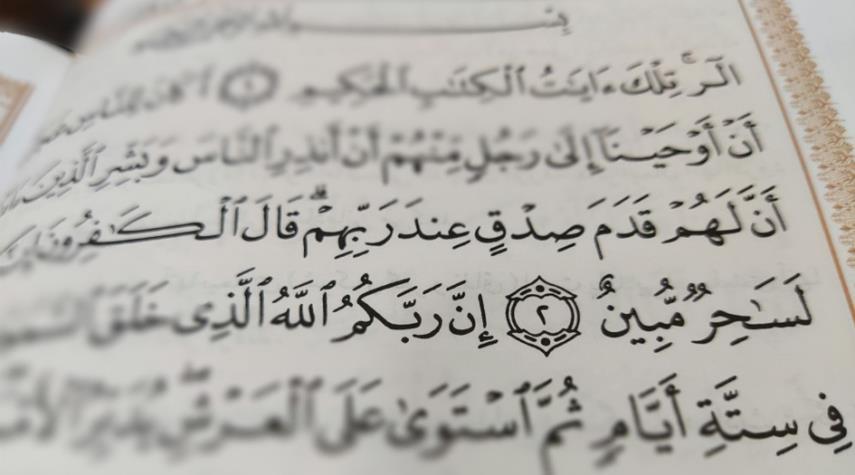 بِسْمِ
الٓر ۚ تِلْكَ ءَايَٰتُ ٱلْكِتَٰبِ ٱلْحَكِيمِ ١ أَكَانَ لِلنَّاسِ
أَنْ أَوْحَيْنَآ إِلَىٰ رَجُلٍ مِّنْهُمْ أَنْ أَنذِرِ ٱلنَّاسَ وَبَشِّرِ ٱلَّذِينَ
أَنَّ لَهُمْ قَدَمَ صِدْقٍ عِندَ رَبِّهِمْ ۗ قَالَ ٱلْكَٰفِرُونَ
لَسَٰحِرٌ مُّبِينٌ ٢ إِنَّ رَبَّكُمُ ٱللَّهُ ٱلَّذِى خَلَقَ
فِى سِتَّةِ أَيَّامٍ ثُمَّ ٱسْتَوَىٰ عَلَى ٱلْعَرْشِ ۖ يُدَبِّرُ